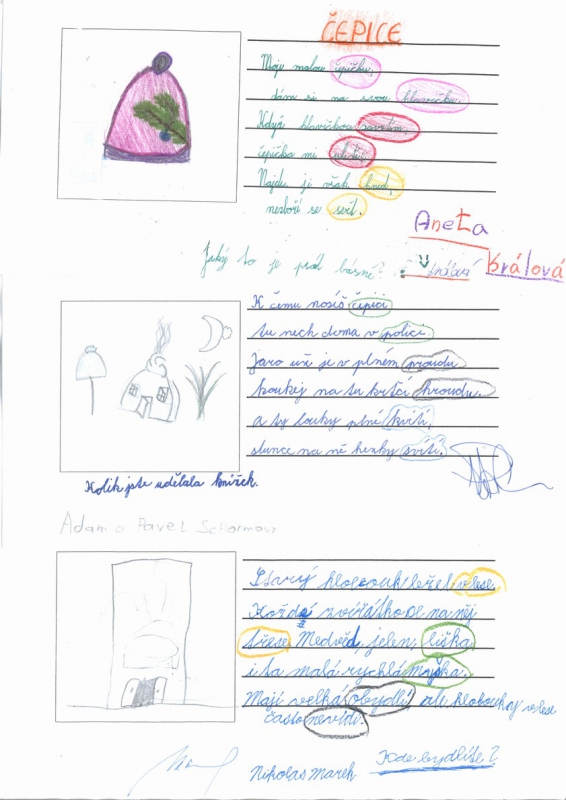 ČEPICE
Moju malou čepičku,
dám si na svou hlavičku.
Když hlavičkou zavrtím,
čepička mi uletí.
Najdu ji však hned,
nezboří se svět.
Aneta
Králová
Jaký to je pád básně?
K čemu nosíš čepici
tu nech doma v polici.
Jaro už je v plném proudu
koukej na tu krtčí hroudu.
a ty louky plné kvítí,
slunce na ně hezky svítí.
Kolik jste udělala knížek.
Adam a Pavel
Starý klobouk ležel v lese.
Každé zvířátko se na něj
třese. Medvěd, jelen, liška
i ta malá rychlá myška.
Mají velká obydlí ale klobouky v lese
často nevidí.
Kde bydlíte?
Nikolas Marek